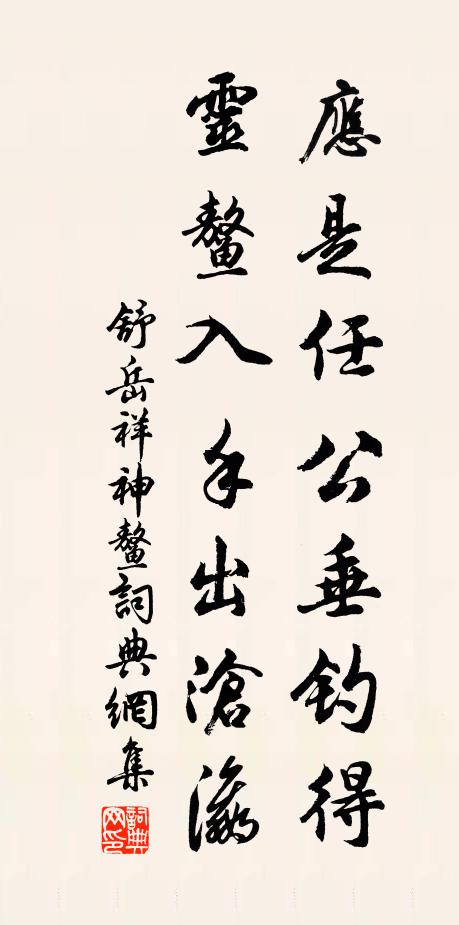 應是任公垂釣得
靈鰲入手出滄瀛
舒岳祥神鰲詞典網集
詞典網印